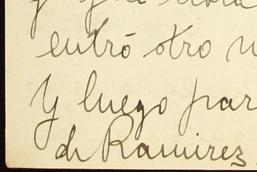 y que
entró otro
Y luego par
de Ramirez